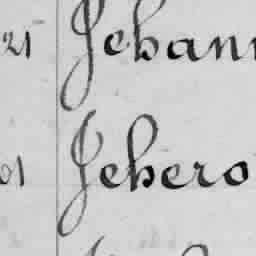 21 Jehann
01 Jehero